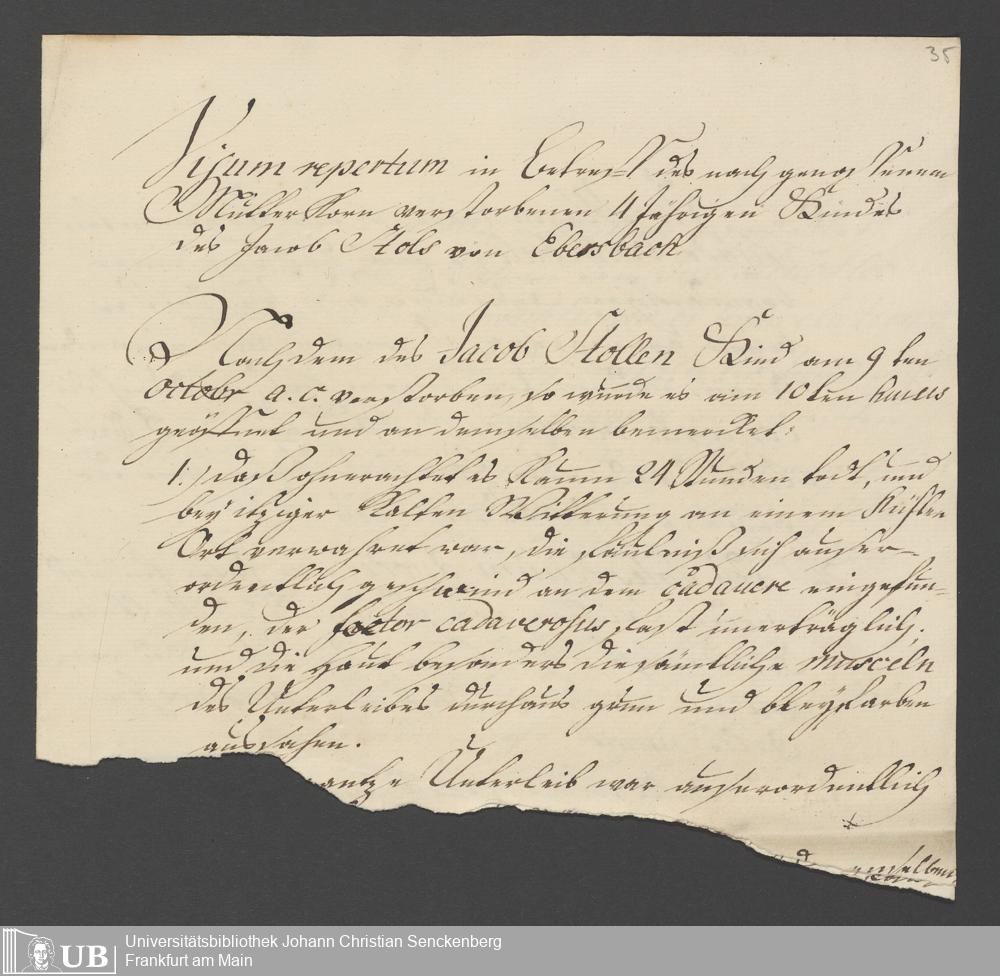 35
Visum repertum in Betreff des nach genossenem
Mutterkorn verstorbenen 4 jährigen Kindes
des Jacob Stols von Ebersbach
Nachdem des Jacob Stollen Kind am 9ten
Octobr a. c. verstorben, so wurde es am 10ten hujus
geöffnet und an demselben bemercket:
1.) daß ohnerachtet es kaum 24 Stunden todt, und
bey itziger kalten Witterung an einem kühlen
Ort verwahret war, die Fäulniß sich außer-
ordentlich geschwind an dem cadauere eingefun-
den, der foetor cadaverosus fast unerträglich,
und die Haut besonders die sämtliche musceln
des Unterleibes durchaus grün und bleyfarben
aussahen.
antze Unterleib war außerordentlich
demselben
UB Universitätsbibliothek Johann Christian Senckenberg
Frankfurt am Main